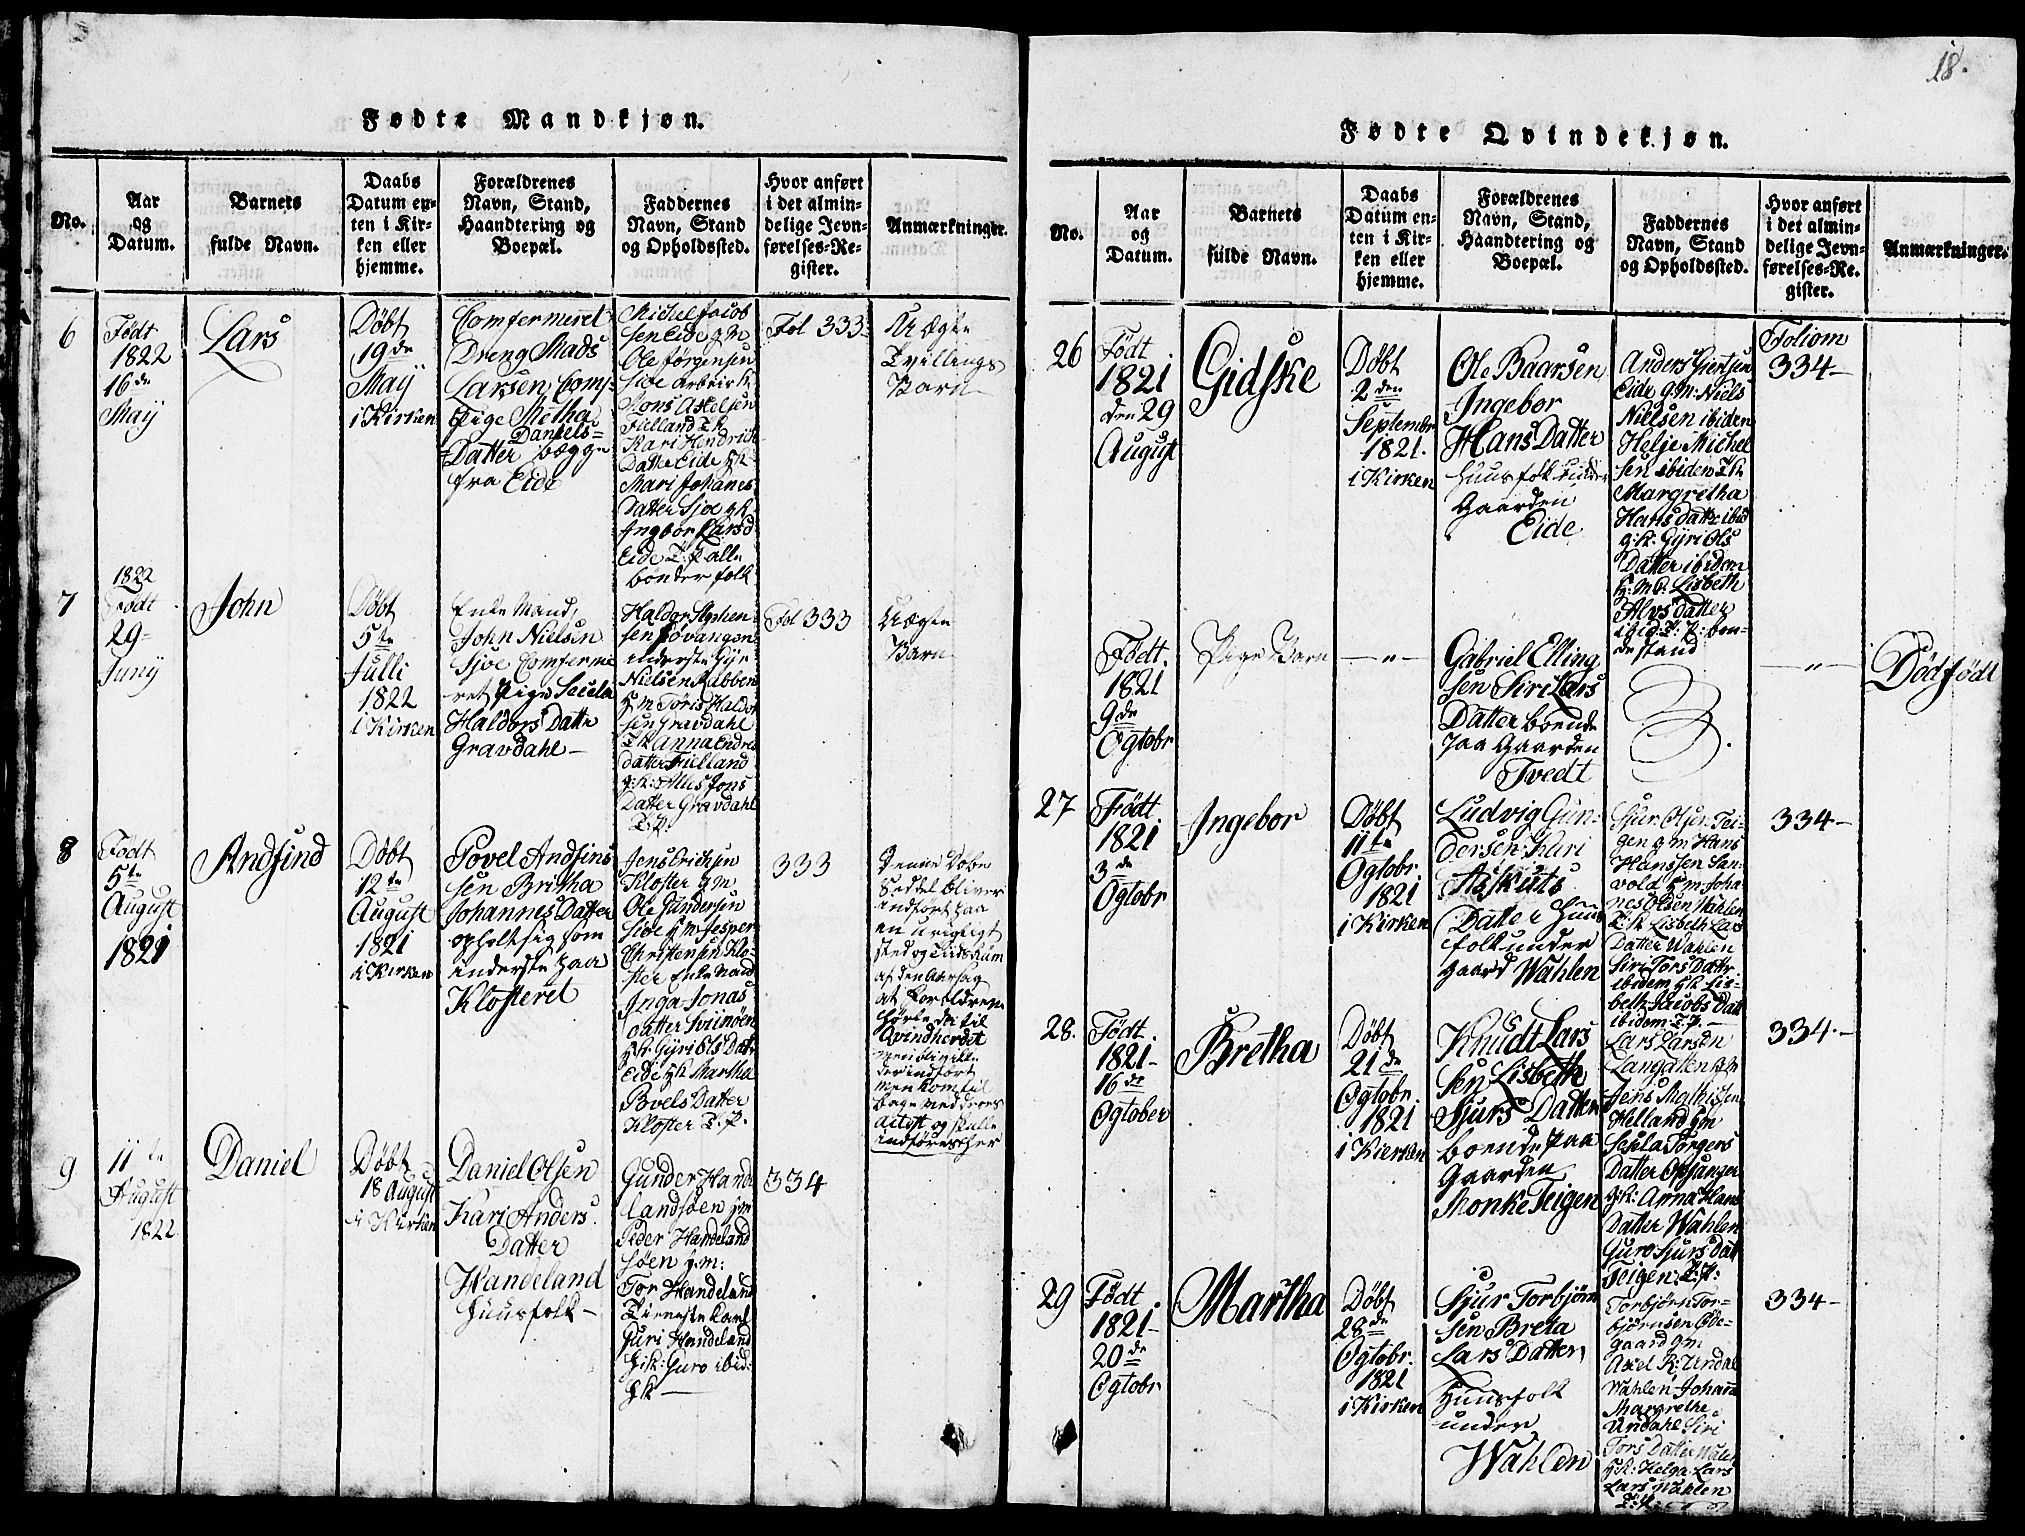 18.
Fødte Mandkjøn.
No.
Aar
og
Datum.
Barnets
fulde Navn.
Daabs
Datum en-
ten i Kir-
ken eller
hjemme.
Forældrenes
Navn, Stand,
Haandtering og
Boepæl.
Faddernes
Navn, Stand
og Opholdssted.
Hvor anført
i det almin-
delige Jevn-
førelses-Re-
gister.
Anmærkninger.
6
Født
1822
16de
Maÿ
Lars
Døbt
19de
Maÿ
i Kirken
Comfermeret
Dreng Mads
Larsen Comf=
Pige Metha
Daniels=
Datter begge
fra Eide
Michel Jacob
sen Eide g M
Ole Jørgensen
Sioe
Mons Axelsen
Fielland
Kari Hendrich
Datter Eide
Mari Johanes
Datter Sjoe g k
Ingbor Larsd
Eide T. P alle
bønder folk
Fol 333
Uægte
Tvillings
Barn
7
1822
Født
29
Junÿ
John
Døbt
5te
Julli
1822
i Kirken
Enke Mand,
John Nielsen
Sjoe Comferme
ret Pige Secela
Haldors Datter
Gravdahl
Haldor Stephen
sen
inderste
Nielsen
Tøris Haldor
sen Gravdahl
Anna Endre
datter Fielland
g: k: Jons
Datter Gravdahl
T. P.
Fol 333
Uægte
Barn
8
Født
5te
August
1821
Andfind
Døbt
12te
August
1821
i Kirken
Povel Andfins
sen Britha
Johannes Datter
opholt sig som
inderste paa
Klosteret
Jens Erichsen
Kloster g m
Ole Gundersen
Sioe Jesper
Christensen Klo-
ster Enke Mand
Inga Jonas
datter Sviinøen
Gÿri Ols Datr
Eide Martha
Povels Datter
Kloster T. P.
333
Denne Døbe
Seddel bliver
andført paa
en Urigtigt
sted og Tidsrum
af den Aarsag
at Foreldrene
hørte til
Qvindherdet
men blev ikke
der indført
men kom til
bage med deres
Attest og skulle
indføres her
9
11te
August
1822
Daniel
Døbt
18 August
i Kirken
Daniel Olsen
Kari Anders.
Datter
Handeland
Huusfolk
Gunder Hande
landsøen
Peder Handeland
søen
Tor Handeland
Tieneste Karl
Guri Handeland
Guro ibid:
334
Fødte Qvindekjøn.
No.
Aar
og
Datum.
Barnets
fulde Navn.
Daabs
Datum en-
ten i Kir-
ken eller
hjemme.
Forældrenes
Navn, Stand,
Haandtering og
Boepæl.
Faddernes
Navn, Stand
og Opholdssted.
Hvor anført
i det almin-
delige Jevn-
førelses-Re-
gister.
Anmærkninger.
26
Født
1821
den 29
August
Gidske
Døbt
2den
Septembr
1821.
i Kirken
Ole Baarsen
Ingebor
Hans Datter
Huusfolk under
Gaarden
Eide
Anders Giertsen
Eide g: m: Niels
Nielsen ibidem
Helje Michel
sen ibidem
Margretha
Hans datter ibid
g: k: Gÿri Ols
Datter ibidem
Lisbeth
Alvs datter
ibid: T: P: bon-
destand
Foliom
334
Født.
1821
9de
Ogtobr
Pige Barn
— " —
Gabriel Elling
sen Siri Lars
Datter boende
paa Gaarden
Tvedt
— " —
Dødfødt
27
Født.
1821
3de
Ogtobr
Ingebor
Døbt
11te
Ogtobr.
1821
i Kirken
Ludvig Gun-
dersen. Kari
Askuts
Datter Huus
folk under
Gaard Wahlen
Sjur Olsen Tei-
gen g m Hans
Hanssen San-
vold Joha
nes Olsen Wahlen
Lisbeth Lars
Datter Wahlen
Siri Tors Dattr.
ibidem Lis-
beth Jacobs Datt
ibidem. T. P.
334
28.
Født.
1821
16de
Ogtober
Bretha
Døbt
21de
Ogtobr.
1821
i Kierken
Knudt Lars
sen Lisbeth
Sjurs Datter
boende paa
Gaarden
Monke Teigen
Lars Larsen
Langatten
Jens Mathisen
Helland
Sehla Torgers
Datter Opsanger
g: k: Anna Hans
Datter Wahlen
Guro Sjurs Datt
Teigen. T. P.
334.
29
Født
1821
20de
Ogtobr
Martha
Døbt
28de
Ogtobr.
1821
i Kirken
Sjur Torbjørn
sen Breta
Lars Datter
Huusfolk
under
Wahlen
Torbjørn Tor-
bjørnsen Øde-
gaard g m
Axel R: Undal
Wahlen Johan
Margrethe
Undahl Siri
Tors Datter Walen
Helga Lars
Lars Wahlen
T. P.
334